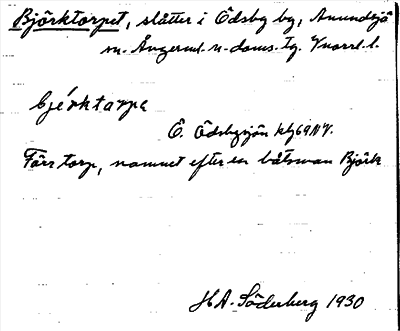 Björktorpet, slåtter i Ödsby by, Anundsjö
sn. Ångerml. n. doms. tg. Vnorrl. l.
bjérktàrpə
Ö. Ödsbysjön kbl 69 NV.
Förr torp, namnet efter en båtsman Björk
H A. Söderberg 1930